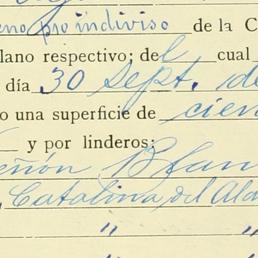 eno pro indiviso de la C
lano respectivo; del cual
día 30 Sept. de
o una superficie de cien
y por linderos:
eñón Blan
Catalina del Ald
" "